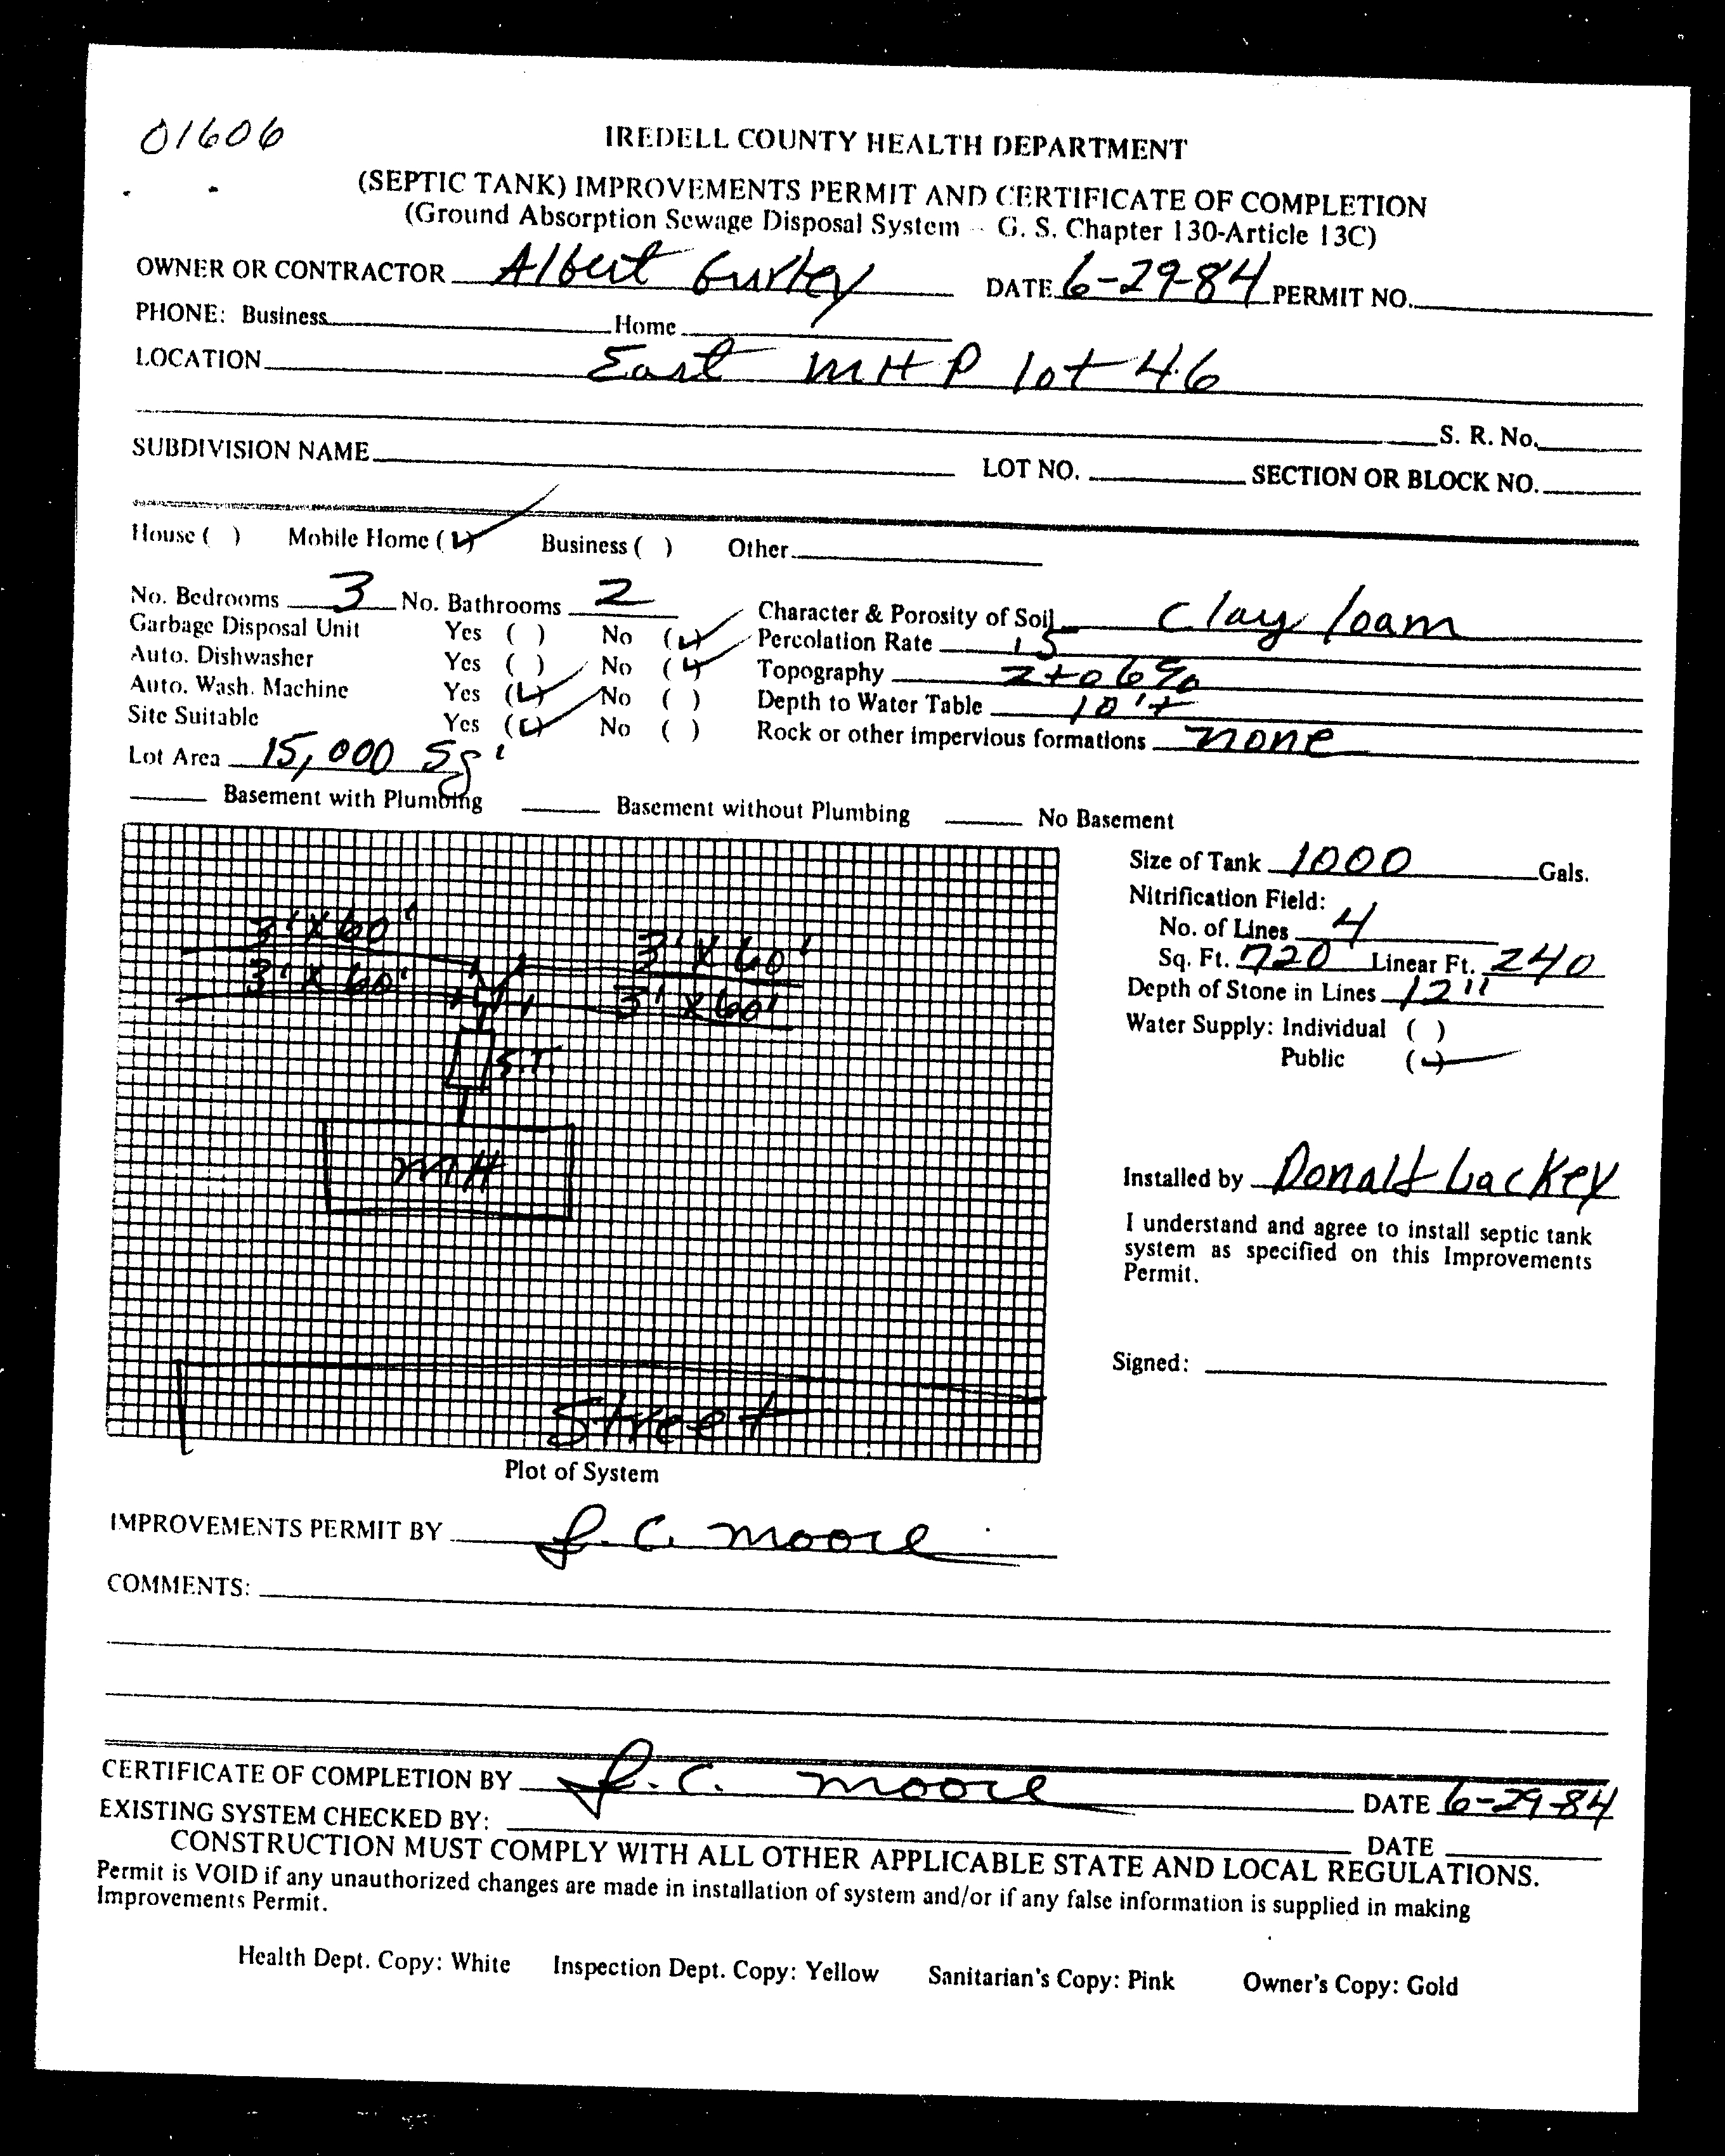 01606
IREDELL COUNTY HEALTH DEPARTMENT
(SEPTIC TANK) IMPROVEMENTS PERMIT AND CERTIFICATE OF COMPLETION
(Ground Absorption Sewage Disposal System - G. S. Chapter 130-Article 13C)
OWNER OR CONTRACTOR Albert Gurley DATE 6-29-84 PERMIT NO.
PHONE: Business Home
LOCATION East MHP lot 46
S. R. No.
SUBDIVISION NAME LOT NO. SECTION OR BLOCK NO.
House ( ) Mobile Home (✓) Business ( ) Other
No. Bedrooms 3 No. Bathrooms 2 Character & Porosity of Soil clay loam
Garbage Disposal Unit Yes ( ) No (✓) Percolation Rate 15
Auto. Dishwasher Yes ( ) No (✓) Topography 2 to 6%
Auto. Wash. Machine Yes (✓) No ( ) Depth to Water Table 10'+
Site Suitable Yes (✓) No ( ) Rock or other impervious formations none
Lot Area 15,000 Sq '
Basement with Plumbing Basement without Plumbing No Basement
Size of Tank 1000 Gals.
Nitrification Field:
No. of Lines 4
Sq. Ft. 720 Linear Ft. 240
Depth of Stone in Lines 12"
Water Supply: Individual ( )
Public (✓)
3' X 60' 3' X 60'
3' X 60' 3' X 60'
S.T.
MH
Street
Installed by Donald Lackey
I understand and agree to install septic tank
system as specified on this Improvements
Permit.
Signed:
Plot of System
IMPROVEMENTS PERMIT BY J. C. Moore
COMMENTS:
CERTIFICATE OF COMPLETION BY J. C. Moore DATE 6-29-84
EXISTING SYSTEM CHECKED BY: DATE
CONSTRUCTION MUST COMPLY WITH ALL OTHER APPLICABLE STATE AND LOCAL REGULATIONS.
Permit is VOID if any unauthorized changes are made in installation of system and/or if any false information is supplied in making
Improvements Permit.
Health Dept. Copy: White Inspection Dept. Copy: Yellow Sanitarian's Copy: Pink Owner's Copy: Gold